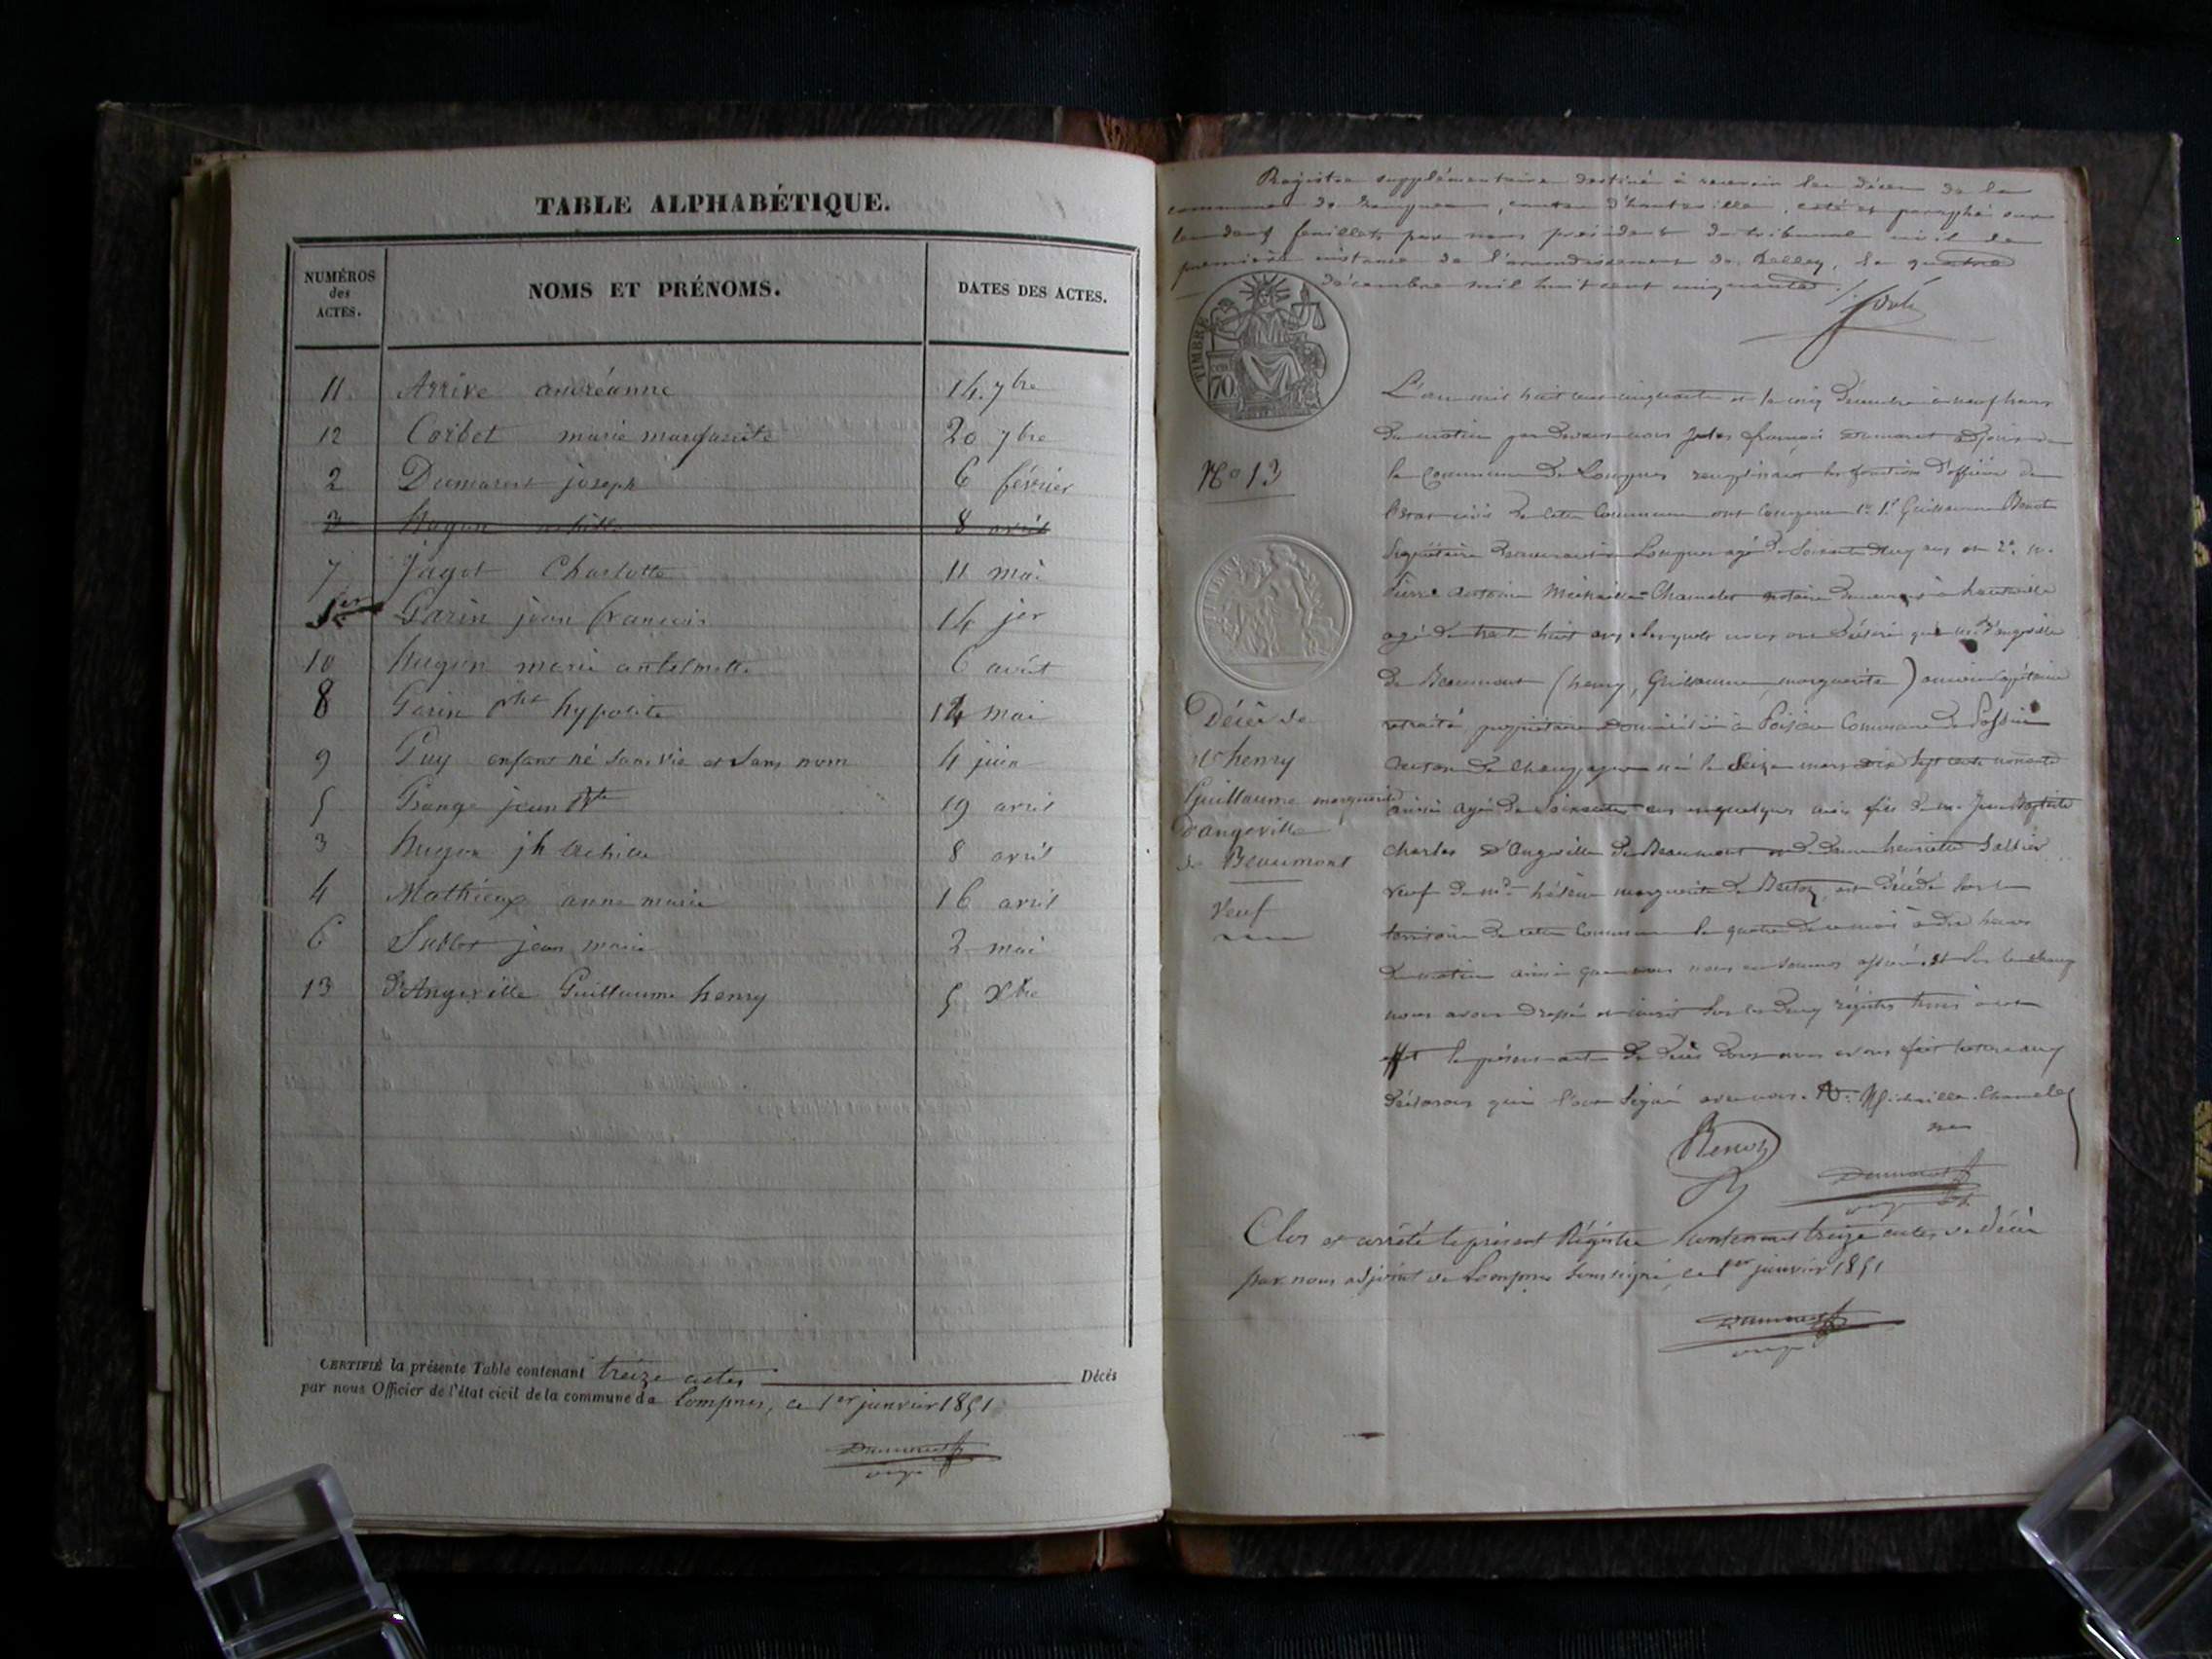 TABLE ALPHABÉTIQUE.
NUMÉROS des ACTES. NOMS ET PRÉNOMS. DATES DES ACTES.
11 Arrive andréanne 14. 7bre
12 Corbet marie marguerite 20 7bre
2 Dumarest joseph 6 février
3 hugon achille 8 avril
7 Jagot Charlotte 11 mai
1er Garin jean francois 14 jer
10 hugon marie antelmette 6 août
8 Garin hypolite 14 mai
9 Guy enfant né sans vie et sans nom 4 juin
5 Grange jean Bte 19 avril
3 hugon jh achille 8 avril
4 Mathieux anne marie 16 avril
6 jean marie 2 mai
13 d'Angeville Guillaume henry 5 Xbre
CERTIFIÉ la présente Table contenant treize actes Décés
par nous Officier de l'état civil de la commune de Lompnes, ce 1er janvier 1851
Dumarest
Registre supplémentaire destiné à recevoir les décès de la
commune de Lompnes, canton d'hauteville, coté et paraphé sur
les deux feuillets par nous président du tribunal civil de
première instance de l'arrondissement de Belley, le quatre
décembre mil huit cent cinquante.
TIMBRE
70
L'an mil huit cent cinquante et le cinq Décembre à neuf heures
du matin par devant nous Jules françois Dumarest adjoint de
No 13
la Commune de Lompnes remplissant les fonctions d'officier de
l'état civil de cette Commune ont comparu 1º Guillaume Benoit
demeurant à Lompnes agé de Soixante deux ans et 2º
Pierre Antoine Michaille-Chamelet notaire demeurant à hauteville
agé de trente huit ans, lesquels nous ont déclaré que d'angeville
de Beaumont (henry, Guillaume, marguerite) ancien Capitaine
Décès de
retraité, propriétaire domicilié à Commune de
henry
Canton de Champagne né le Seize mars dix Sept cent nonante
Guillaume marguerite
ainsi agé de Soixante ans et quelques mois fils de Jean Baptiste
d'angeville
de Beaumont
Charles d'Angeville de Beaumont et de dame henriette
Veuf
veuf de mde hélène marguerite de est décédé sur le
territoire de cette Commune le quatre de ce mois à dix heures
du matin ainsi que nous nous en sommes assuré. Et Sur le champ
nous avons dressé et inscrit Sur les deux régistres tenus à cet
effet le présent acte de décès dont nous avons fait lecture aux
déclarans qui l'ont Signé avec nous. Michaille-Chamelet
Benoit
Dumarest
Clos et arrêté le présent Régistre contenant treize actes de décès
par nous adjoint de Lompnes soussigné, ce 1er janvier 1851
Dumarest